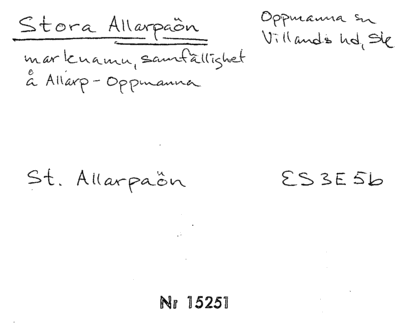 Stora Allarpaön
Oppmanna sn
Villands hd, Sk
marknamn, samfällighet
å Allarp-Oppmanna
St. Allarpaön
ES3E5b
Nr 15251